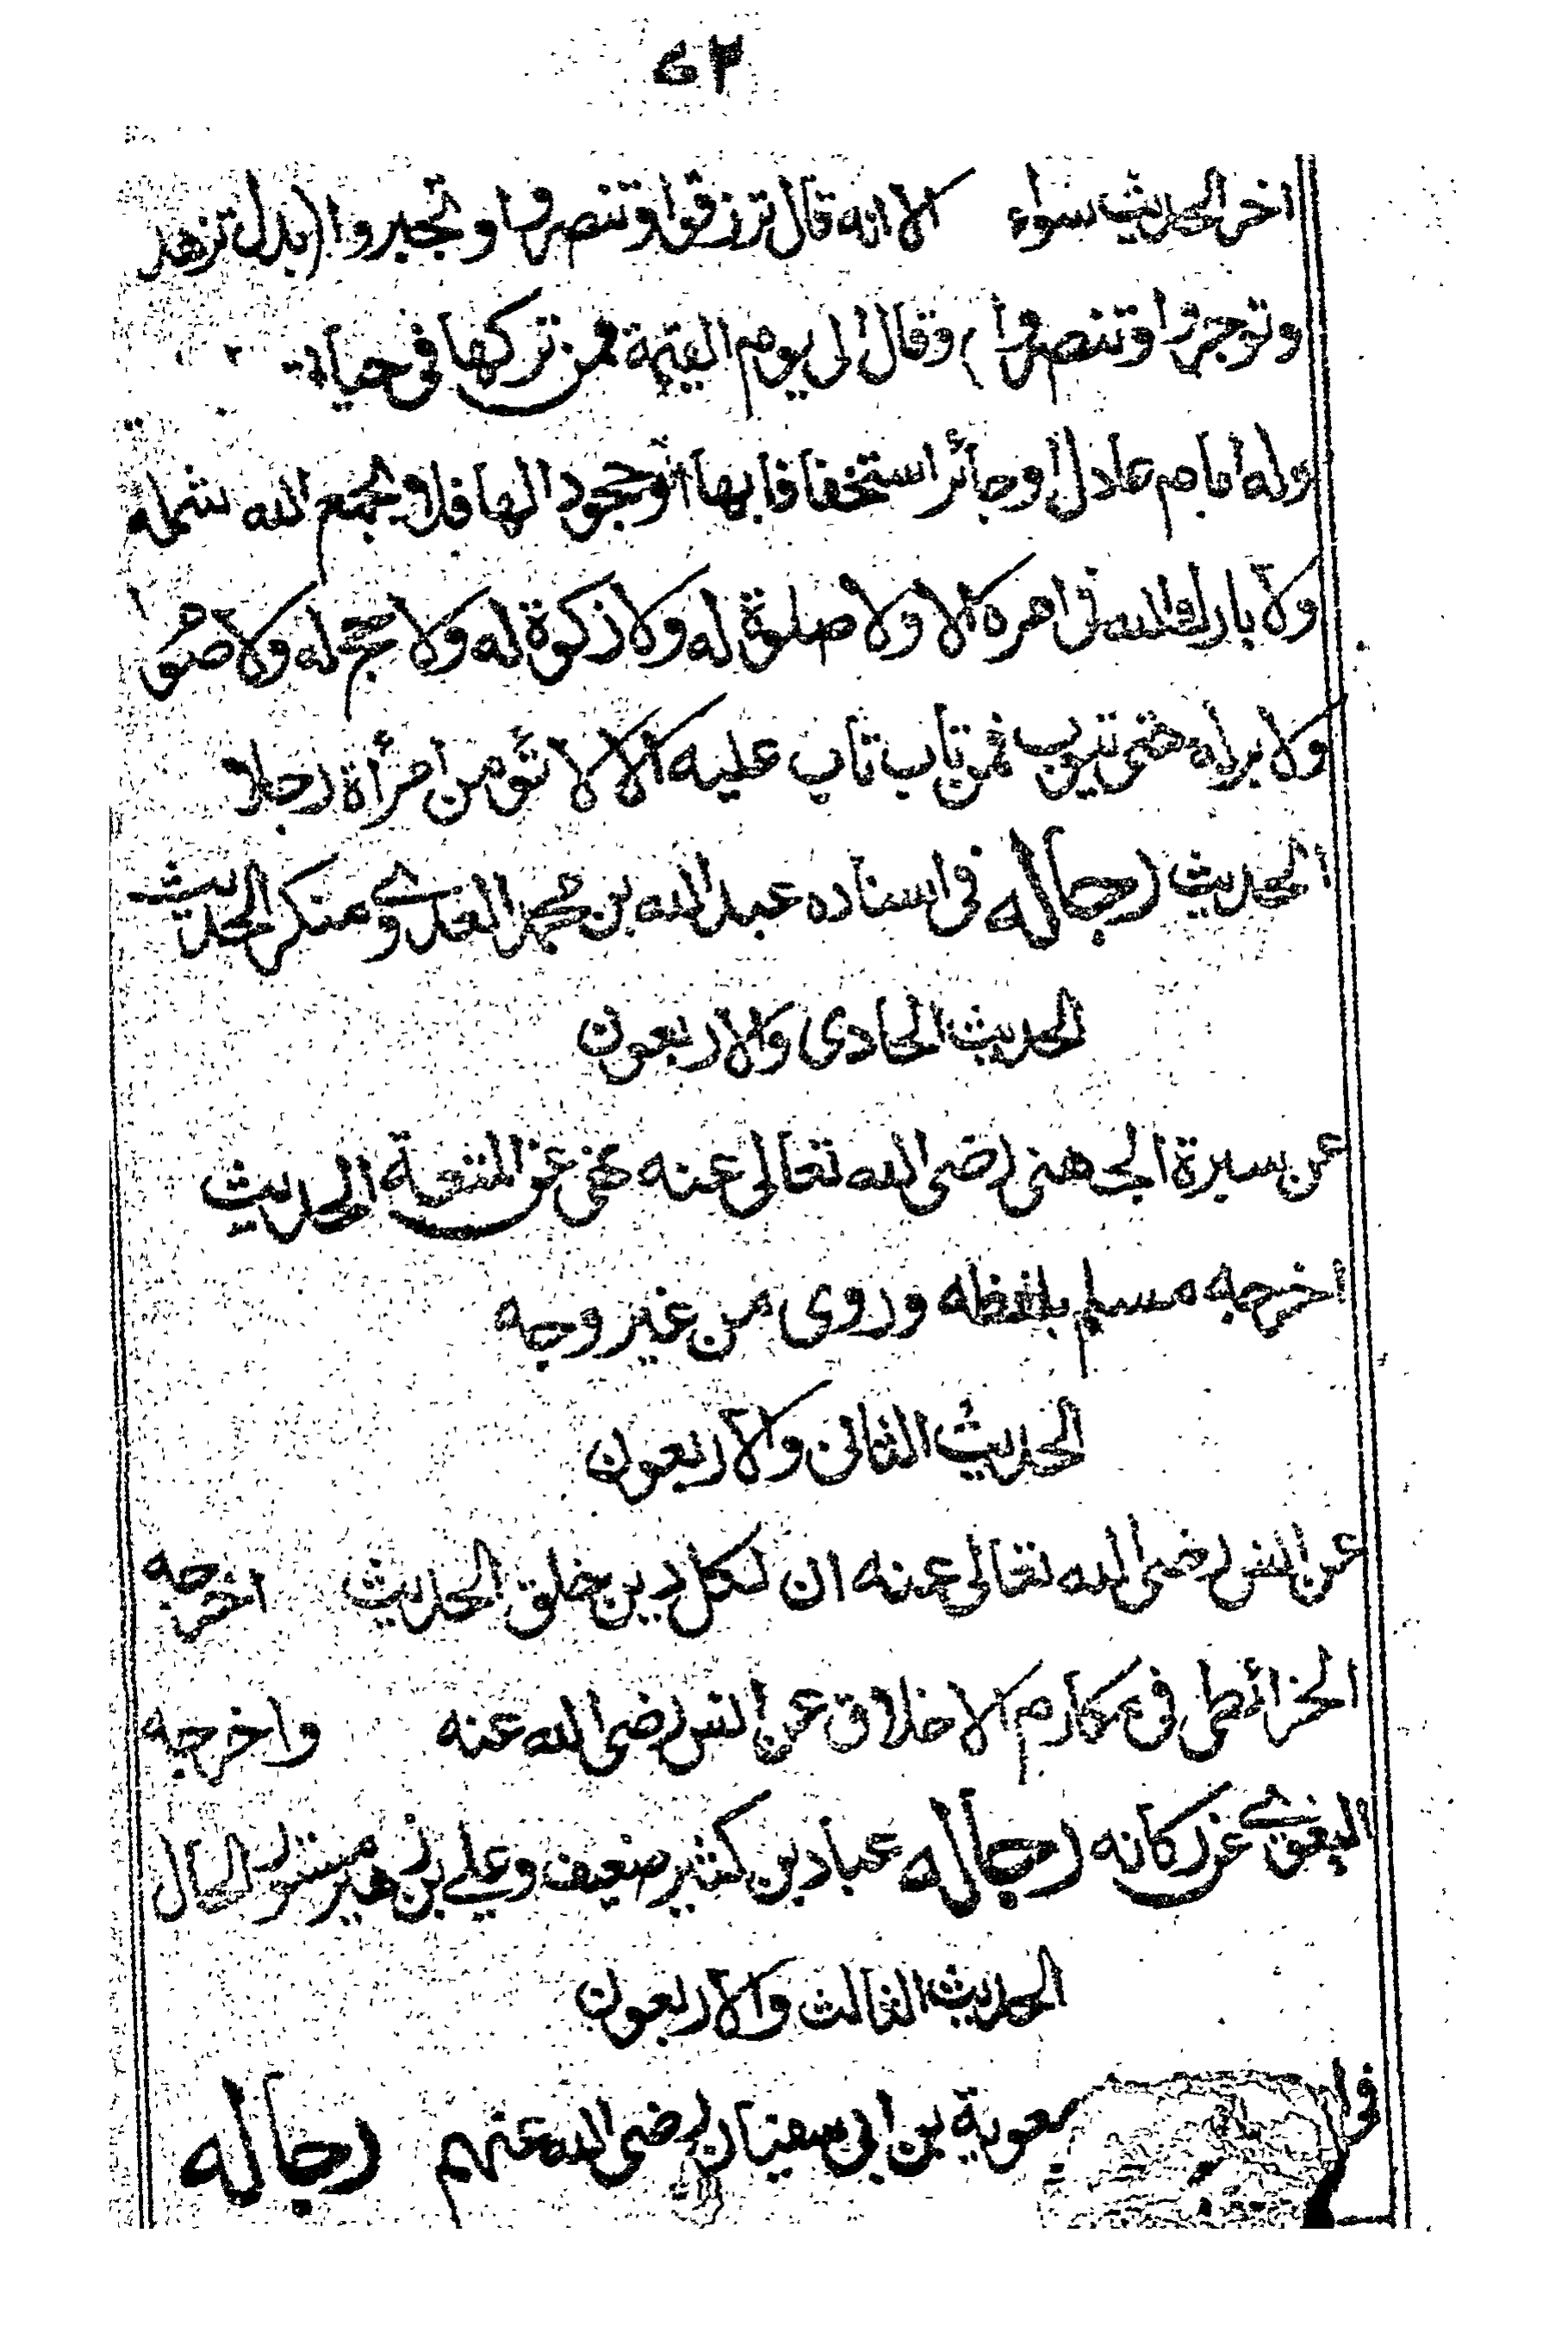 ٤٣
اخر الحديث سواء الا انه قال ترزقوا وتنصروا وتجبروا (بدل تزهد
وتوجروا وتنصروا) وقال الى يوم القيمة فمن تركها فى حياتى
وله امام عادل او جائر استخفافا بها او جحودا لها فلا يجمع الله شمله
ولا بارك الله فى امره الا ولا صلوة له ولا زكوة له ولا حج له ولا صوم
ولا بر له حتى يتوب فمن تاب تاب عليه الا لا تؤمن امرأة رجلا
الحديث رجاله فى اسناده عبد الله بن محمد العدوى منكر الحديث
الحديث الحادى والاربعون
عن سبرة الجهنى رضى الله تعالى عنه نهى عن المتعة الحديث
اخرجه مسلم بلفظه وروى من غير وجه
الحديث الثانى والاربعون
عن انس رضى الله تعالى عنه ان لكل دين خلق الحديث اخرجه
الخرائطى فى مكارم الاخلاق عن انس رضى الله عنه واخرجه
البغوى عن ركانه رجاله عباد بن كثير ضعيف وعلى بن مستور الحال
الحديث الثالث والاربعون
معوية بن ابى سفيان رضى الله عنهم رجاله